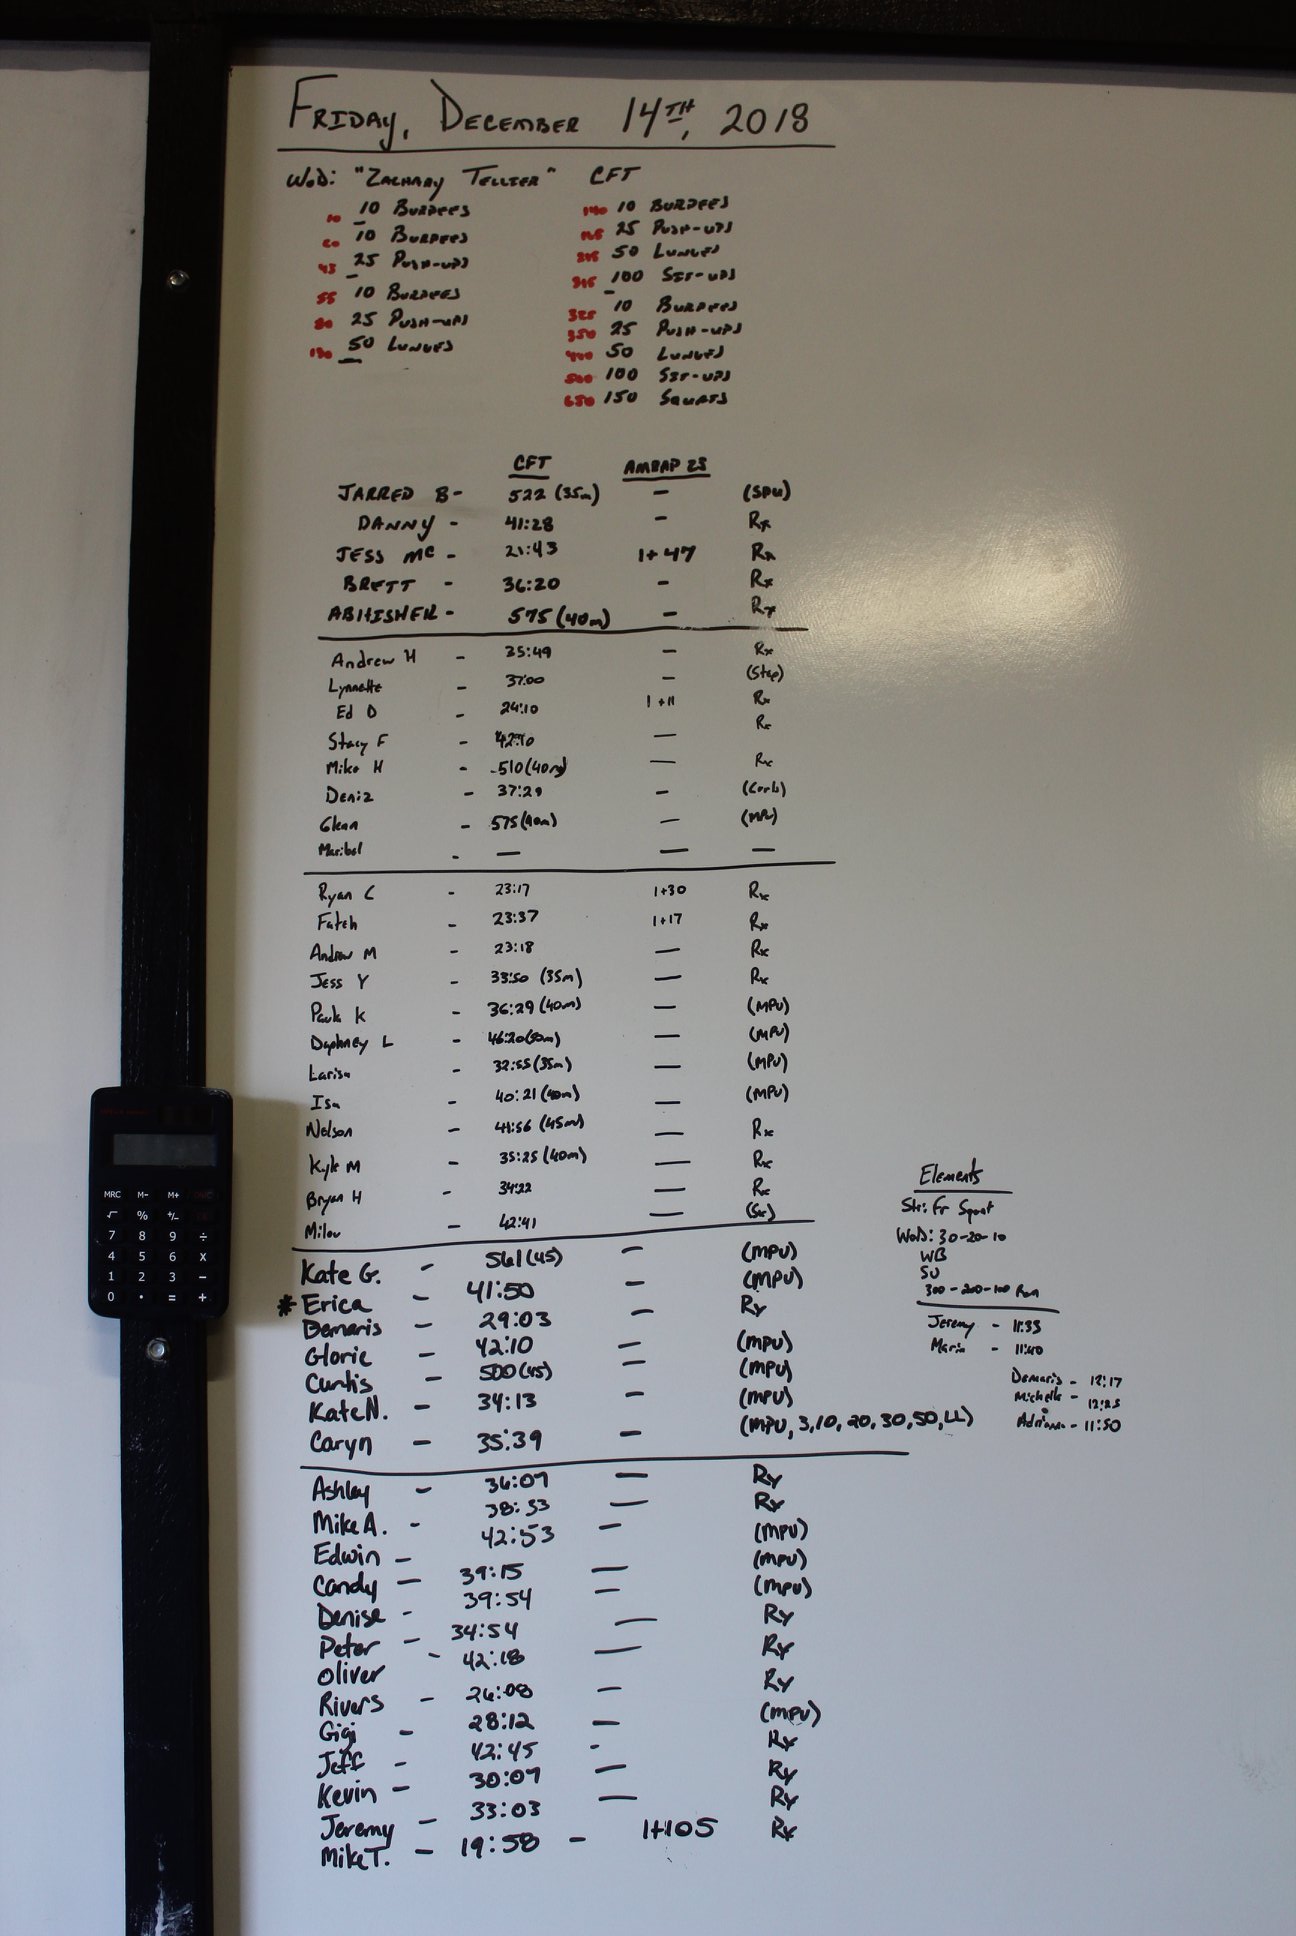 FRIDAY, DECEMBER 14TH, 2018
WOD: "ZACHARY TELLIER" CFT
10 10 BURPEES
20 10 BURPEES
45 25 PUSH-UPS
55 10 BURPEES
80 25 PUSH-UPS
130 50 LUNGES
140 10 BURPEES
165 25 PUSH-UPS
215 50 LUNGES
315 100 SIT-UPS
325 10 BURPEES
350 25 PUSH-UPS
400 50 LUNGES
500 100 SIT-UPS
650 150 SQUATS
CFT AMRAP 25
JARRED B- 522 (35m) - (SPU)
DANNY - 41:28 - Rx
JESS MC - 21:43 1+47 Rx
BRETT - 36:20 - Rx
ABHISHEK - 575 (40m) - Rx
Andrew H - 35:49 - Rx
Lynnette - 37:00 - (Step)
Ed D - 24:10 1+11 Rx
Stacy F - 42:10 - Rx
Mike H - 510 (40m) - Rx
Deniz - 37:29 -
Glenn - 575 (40m) - (MPU)
Maribel - - - -
Ryan C - 23:17 1+30 Rx
Fateh - 23:37 1+17 Rx
Andrew M - 23:18 - Rx
Jess Y - 33:50 (35m) - Rx
Paula K - 36:29 (40m) - (MPU)
Daphney L - 46:20 (50m) - (MPU)
Larisa - 32:55 (35m) - (MPU)
Isa - 40:21 (40m) - (MPU)
Nelson - 44:56 (45m) - Rx
Kyle M - 35:25 (40m) - Rx
Bryan H - 34:22 - Rx
Milou - 42:41 - (Sc)
Kate G. - 561 (45) - (MPU)
* Erica - 41:50 - (MPU)
Demaris - 29:03 - Rx
Glorie - 42:10 - (MPU)
Curtis - 500 (45) - (MPU)
Kate N. - 34:13 - (MPU)
Caryn - 35:39 - (MPU, 3,10, 20, 30, 50, LL)
Ashley - 36:07 - Rx
Mike A. - 38:53 - Rx
Edwin - 42:53 - (MPU)
Candy - 39:15 - (MPU)
Denise - 39:54 - (MPU)
Peter - 34:54 - Rx
Oliver - 42:18 - Rx
Rivers - 26:08 - Rx
Gigi - 28:12 - (MPU)
Jeff - 42:45 - Rx
Kevin - 30:07 - Rx
Jeremy - 33:03 - Rx
Mike T. - 19:58 - 1+105 Rx
Elements
Str: Fr Squat
WOD: 30-20-10
WB
SU
300-200-100 Run
Jeremy - 11:33
Maria - 11:40
Demaris - 12:17
Michelle - 12:25
Adriana - 11:50
MRC M- M+
√ % +/-
7 8 9 ÷
4 5 6 X
1 2 3 −
0 • = +